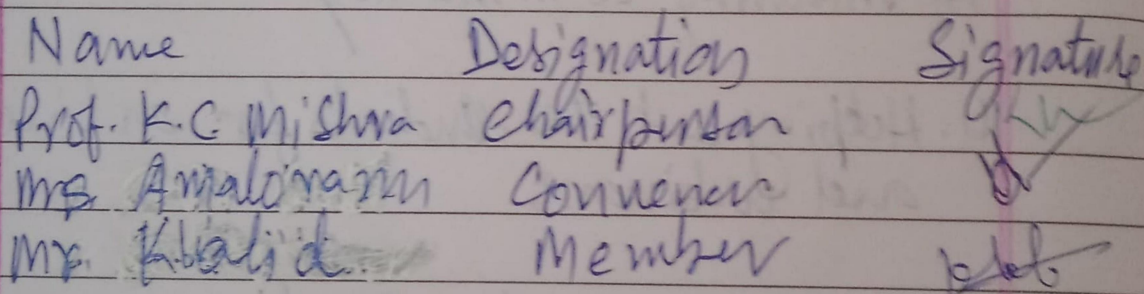 Name Designation Signature
Prof. K.C Mishra Chairperson
Ms. Convener
Mr. Khalid Member